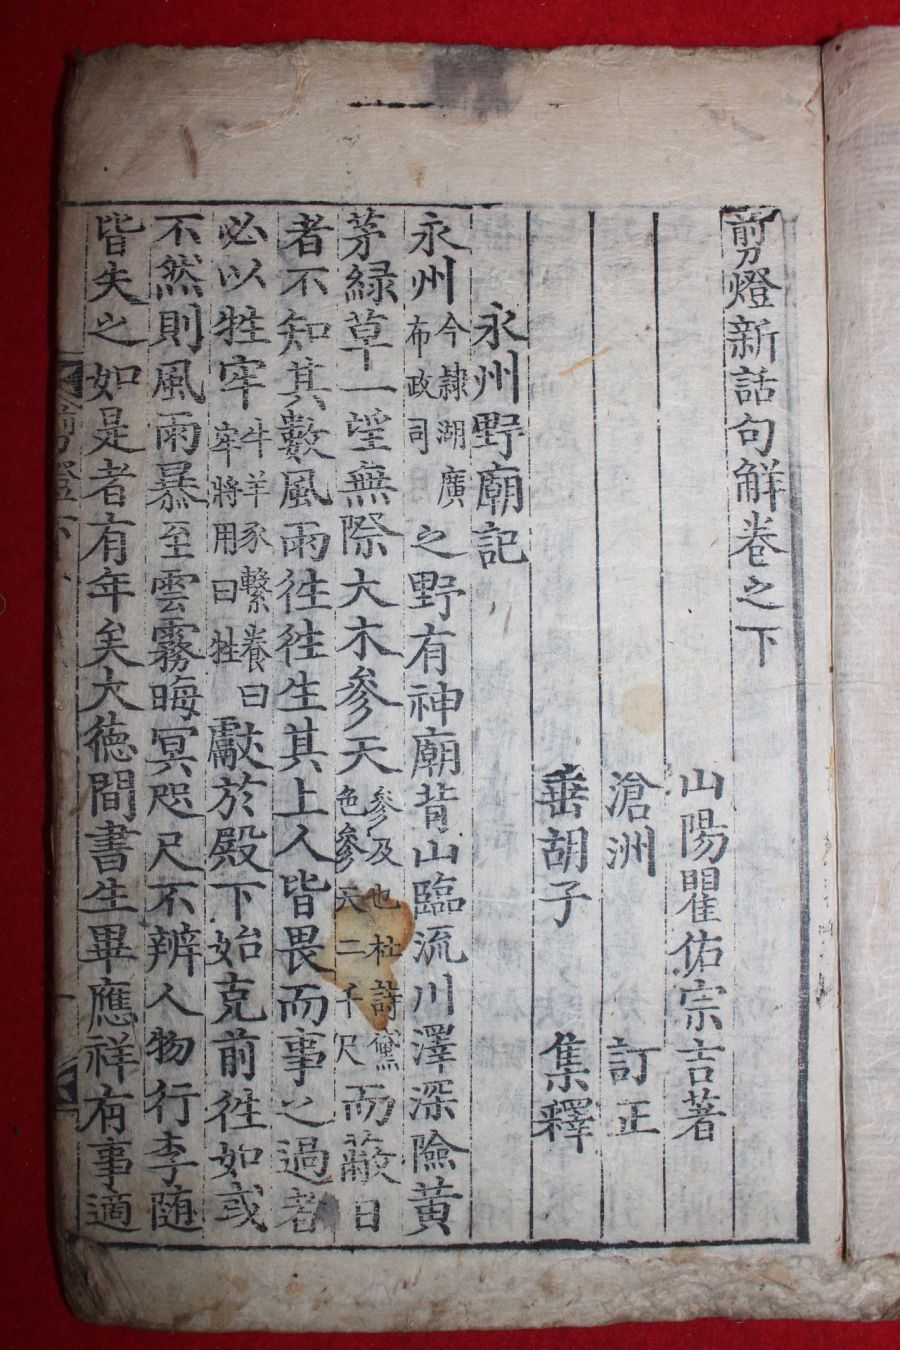 剪燈新話句解卷之下
山陽瞿佑宗吉著
滄洲 訂正
垂胡子 集釋
永州野廟記
永州今隷湖廣布政司之野有神廟背山臨流川澤深險黄
茅緑草一望無際大木參天參及也杜詩黛色參天二千尺而蔽日
者不知其數風雨徃徃生其上人皆畏而事之過者
必以牲牢牛羊豕繫養曰牢將用曰牲獻於殿下始克前徃如或
不然則風雨暴至雲霧晦冥咫尺不辨人物行李随
皆失之如是者有年矣大徳間書生畢應祥有事適